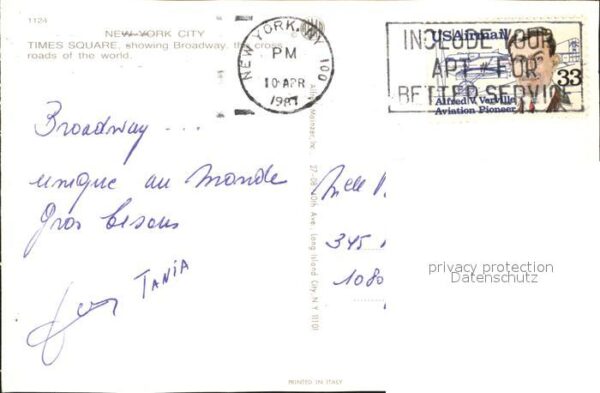 1124
NEW YORK CITY
TIMES SQUARE, showing Broadway, the cross
roads of the world.
NEW YORK, NY 100
PM
10 APR
1987
INCLUDE YOUR
APT # FOR
BETTER SERVICE
USAirmail
33
Alfred V. Verville
Aviation Pioneer
Broadway ...
unique au monde
Gros bisous
TANIA
Manzar, Inc. 27-08 40th Ave., Long Island City, N.Y. 11101
Melle
345
1080
privacy protection
Datenschutz
PRINTED IN ITALY